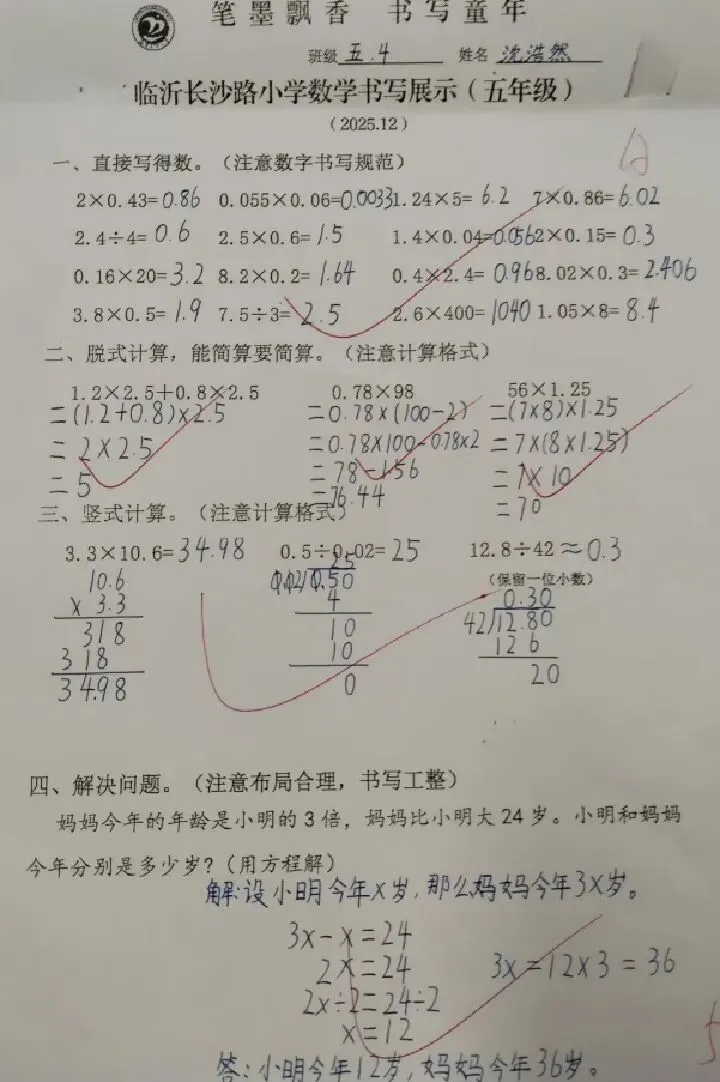 笔墨飘香 书写童年
班级 五.4 姓名 沈浩然
临沂长沙路小学数学书写展示（五年级）
（2025.12）
一、直接写得数。（注意数字书写规范）
2×0.43=0.86 0.055×0.06=0.0033 1.24×5=6.2 7×0.86=6.02
2.4÷4=0.6 2.5×0.6=1.5 1.4×0.04=0.056 2×0.15=0.3
0.16×20=3.2 8.2×0.2=1.64 0.4×2.4=0.96 8.02×0.3=2.406
3.8×0.5=1.9 7.5÷3=2.5 2.6×400=1040 1.05×8=8.4
二、脱式计算，能简算要简算。（注意计算格式）
1.2×2.5+0.8×2.5 0.78×98 56×1.25
=(1.2+0.8)×2.5 =0.78×(100-2) =(7×8)×1.25
=2×2.5 =0.78×100-0.78×2 =7×(8×1.25)
=5 =78-1.56 =7×10
=76.44 =70
三、竖式计算。（注意计算格式）
3.3×10.6=34.98 0.5÷0.02=25 12.8÷42≈0.3
（保留一位小数）
10.6 25 0.30
× 3.3 0.02/0.50 42/12.80
318 4 126
318 10 20
34.98 10
0
四、解决问题。（注意布局合理，书写工整）
妈妈今年的年龄是小明的3倍，妈妈比小明大24岁。小明和妈妈
今年分别是多少岁？（用方程解）
解:设小明今年x岁,那么妈妈今年3x岁。
3x-x=24
2x=24 3x=12×3=36
2x÷2=24÷2
x=12
答:小明今年12岁,妈妈今年36岁。